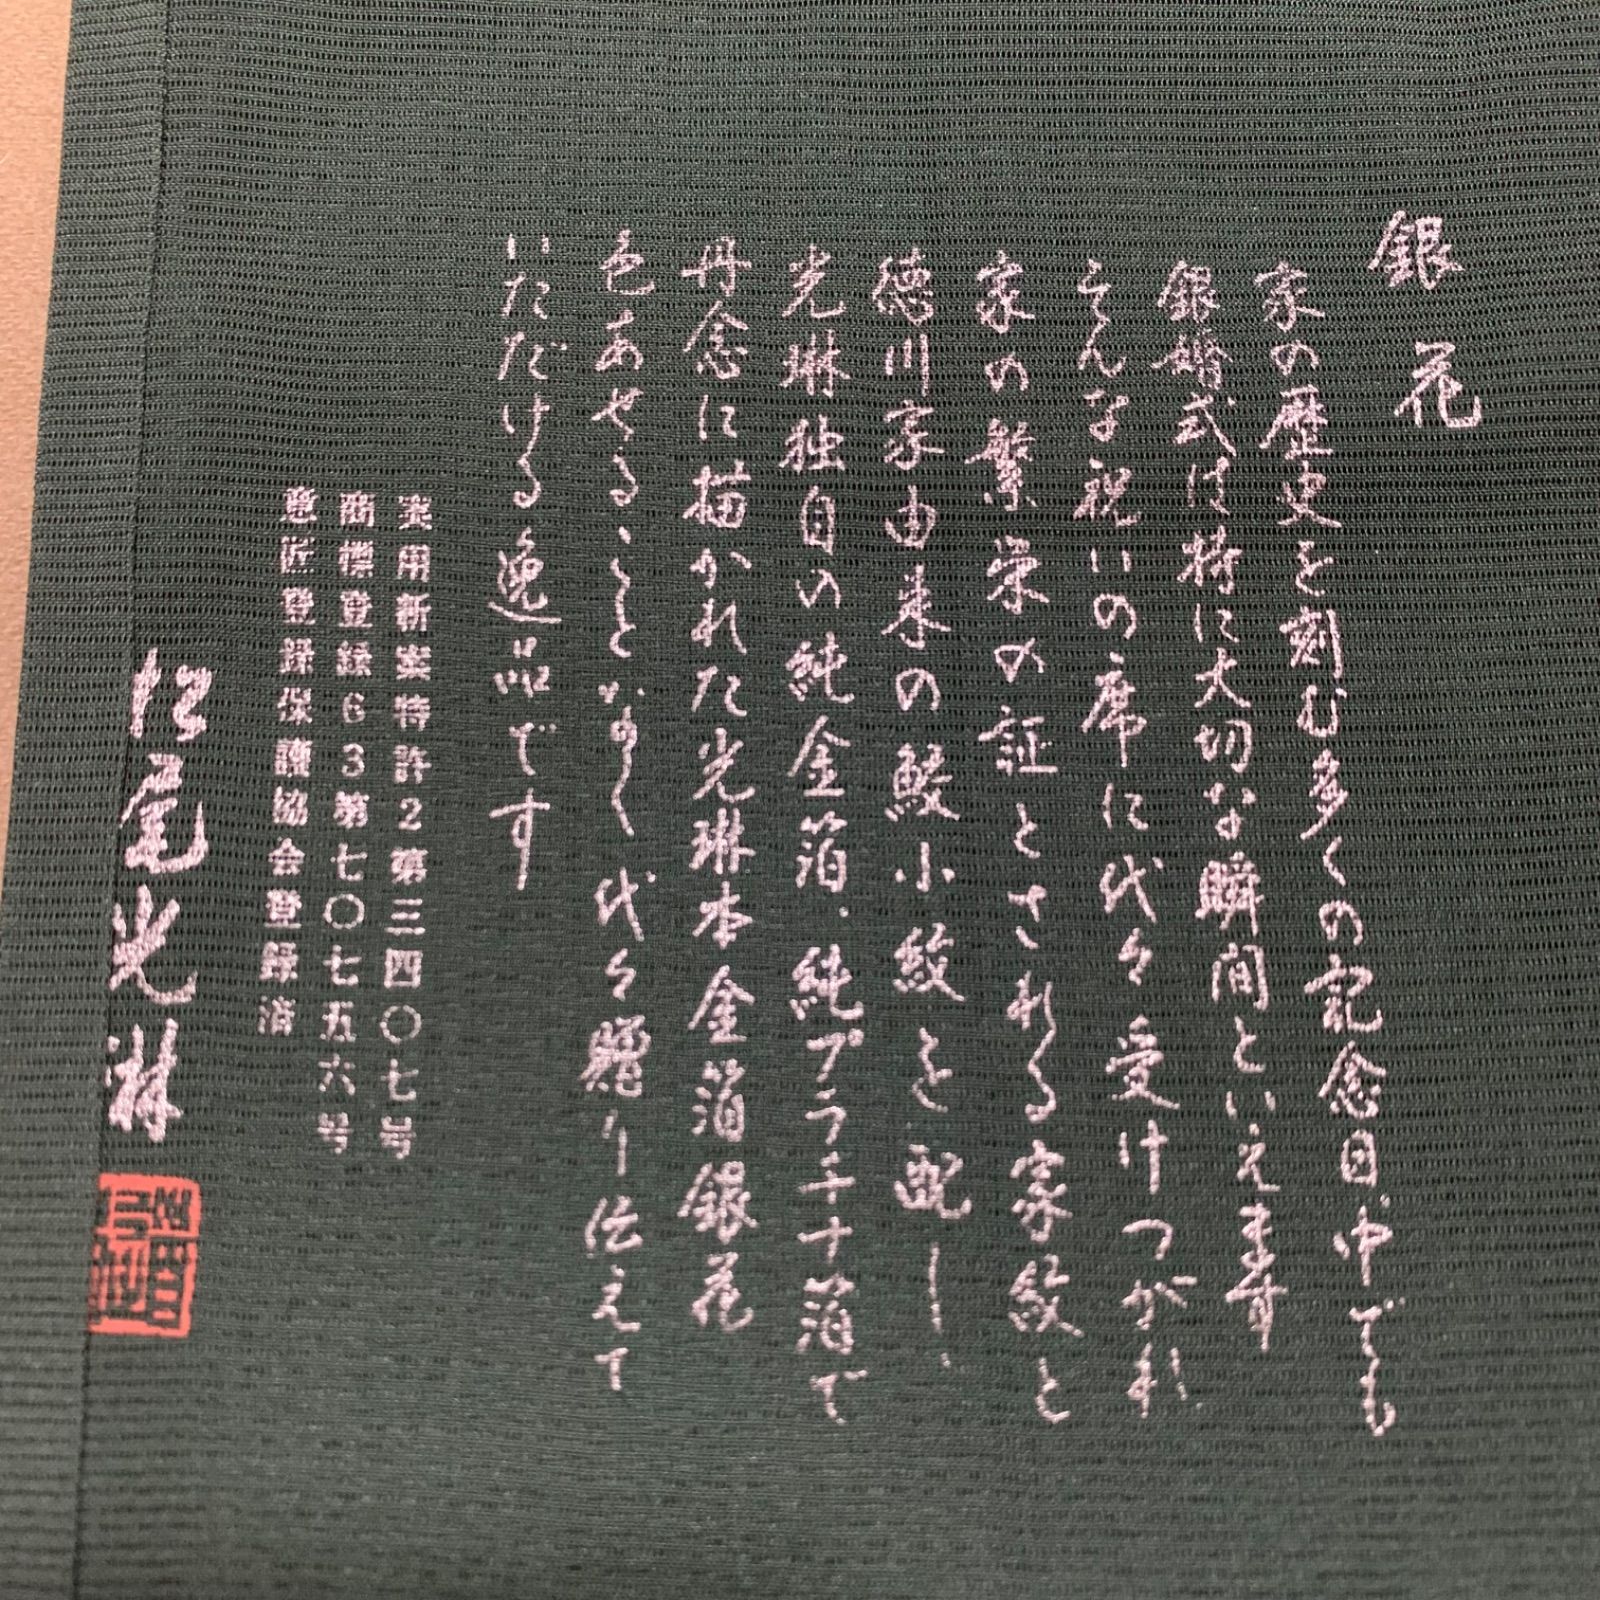 銀花
家の歴史を刻む多くの記念日、中でも
銀婚式は特に大切な瞬間といえます
そんな祝いの席に代々受けつがれ
家の繁栄の証とされる家紋と
徳川家由来の鮫小紋を配し、
光琳独自の純金箔、純プラチナ箔で
丹念に描かれた光琳本金箔銀花
色あせることなく代々贈り伝えて
いただける逸品です
実用新案特許2第三四〇七号
商標登録63第七〇七五六号
意匠登録保護協会登録済
松尾光琳